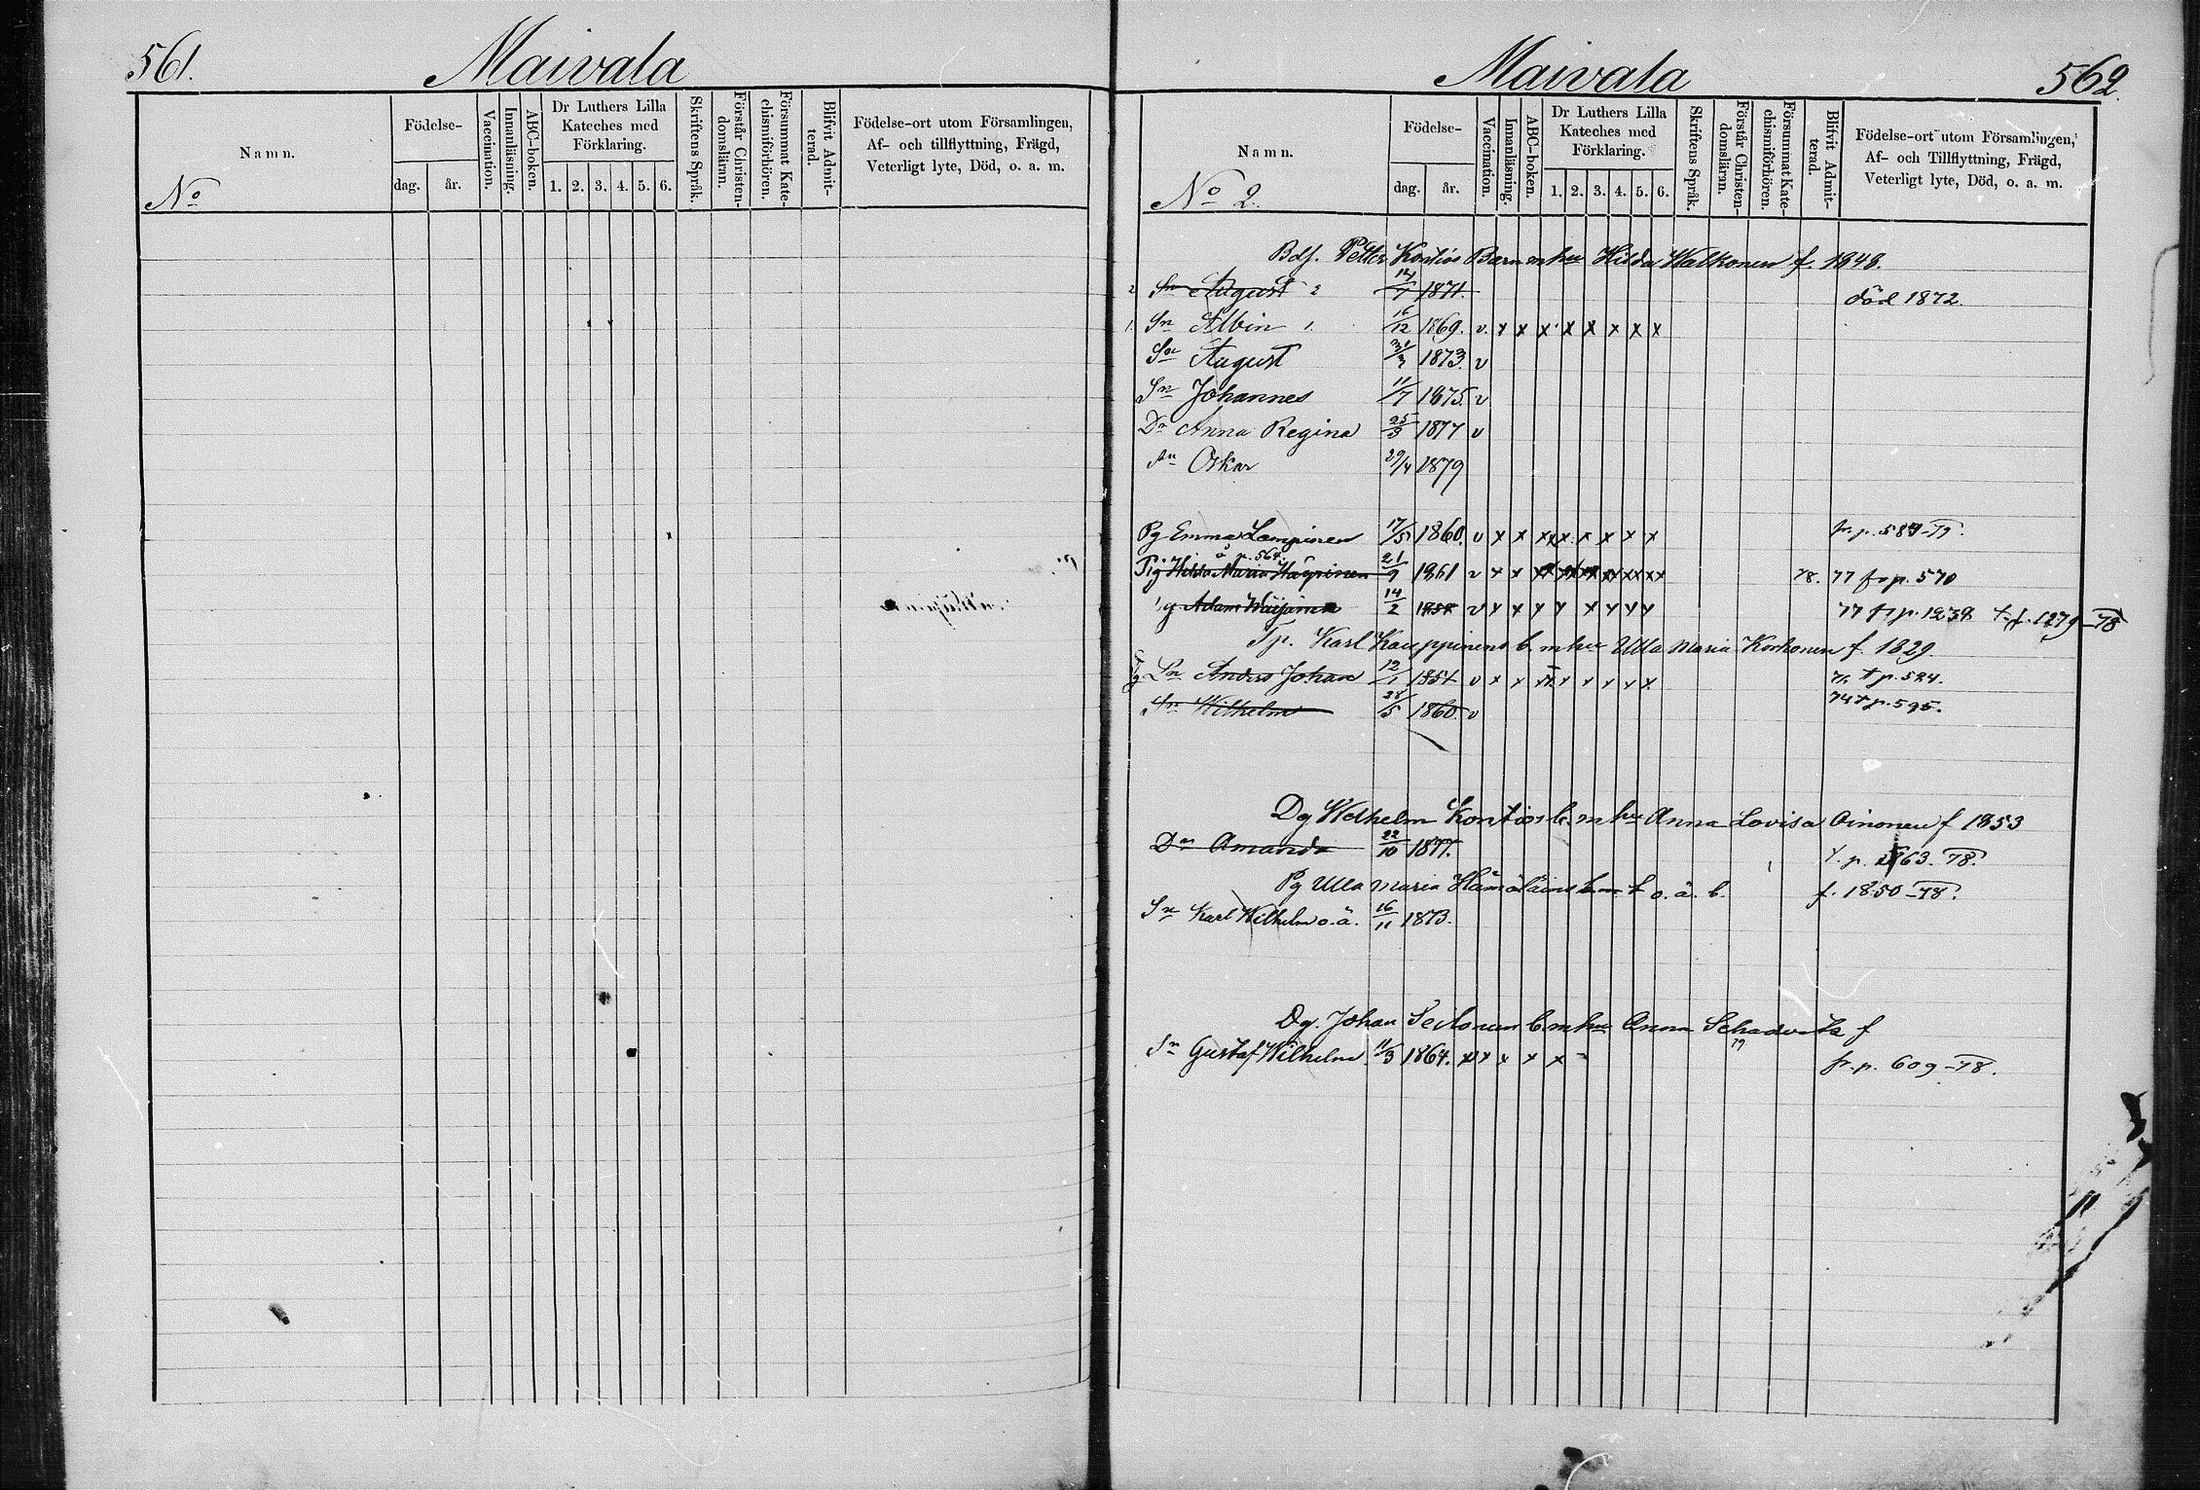 561.
Maivala
Namn.
No
Födelse-
dag.
år.
Vaccination.
Innanläsning.
ABC-boken.
Dr Luthers Lilla
Kateches med
Förklaring.
1. 2. 3. 4. 5. 6.
Skriftens Språk.
Förstår Christen-
domsläran.
Försummat Kate-
chismiförhören.
Blifvit Admit-
terad.
Födelse-ort utom Församlingen,
Af- och tillflyttning, Frägd,
Veterligt lyte, Död, o. a. m.
Maivala
562.
Namn.
No 2.
Födelse-
dag.
år.
Vaccination.
Innanläsning.
ABC-boken.
Dr Luthers Lilla
Kateches med
Förklaring.
1. 2. 3. 4. 5. 6.
Skriftens Språk.
Förstår Christen-
domsläran.
Försummat Kate-
chismiförhören.
Blifvit Admit-
terad.
Födelse-ort utom Församlingen,
Af- och Tillflyttning, Frägd,
Veterligt lyte, Död, o. a. m.
Petter Kontiös Barn m hu Hilda Walkonen f. 1848.
2 Sn August 2 1871. död 1872.
1. Sn Albin 1. 16/12 1869. v. x x x x x x x x
Sn August 31/3 1873. v
Sn Johannes 11/7 1875. v
Dr Anna Regina 25/3 1877 v
Sn Oskar 29/4 1879
Pg Emma Lampinen 17/5 1860. v x x x x x x x x fr. p. 587-79.
p. 564.
Pig Hilda Maria Häyrinen 21/9 1861 v x x 78. 77 fr p. 570
g Adam 14/2 v x x x x x x x x 77 fr p.
Tp. Karl Kauppinens b. m hu Ulla Maria Korhonen f. 1829.
Sn Anders Johan 12/1 1854 v x x x x x x x x t p. 524.
Sn Wilhelm 28/5 1860. v 74 t p. 595.
Dg Wilhelm Kontiös b. m hu Anna Lovisa Oinonen f 1853
Dr Amanda 22/10 1877. 78.
Pg Ulla Maria o. ä. b. f. 1850-78.
Sn Karl Wilhelm o. ä. 16/11 1873.
Dg. Johan b. m hu Anna f
Sn Gustaf Wilhelm 11/3 1864. x x x x fr. p. 609-78.